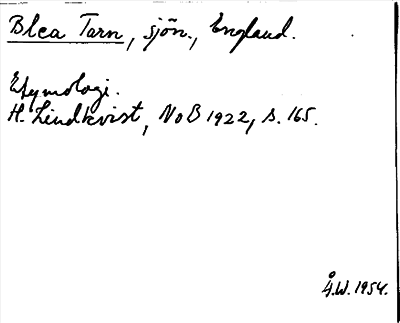 Blea Tarn, sjön., England.
Etymologi.
H. Lindkvist, NoB 1922, s. 165.
Å.W. 1954.